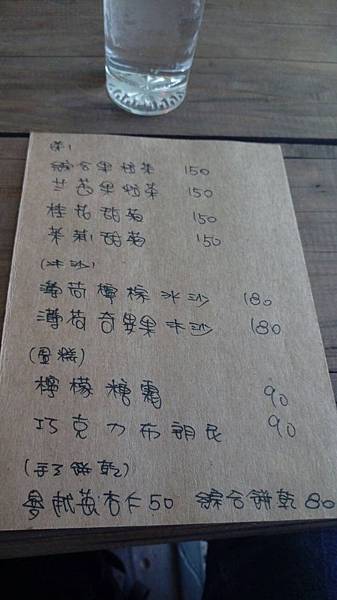 茶)
綜合果粒茶 150
芒芭果粒茶 150
桂花甜菊 150
茉莉甜菊 150
(冰沙)
薄荷檸檬冰沙 180
薄荷奇異果冰沙 180
(蛋糕)
檸檬糖霜 90
巧克力布朗尼 90
(手工餅乾)
蔓越莓杏仁50 綜合餅乾80